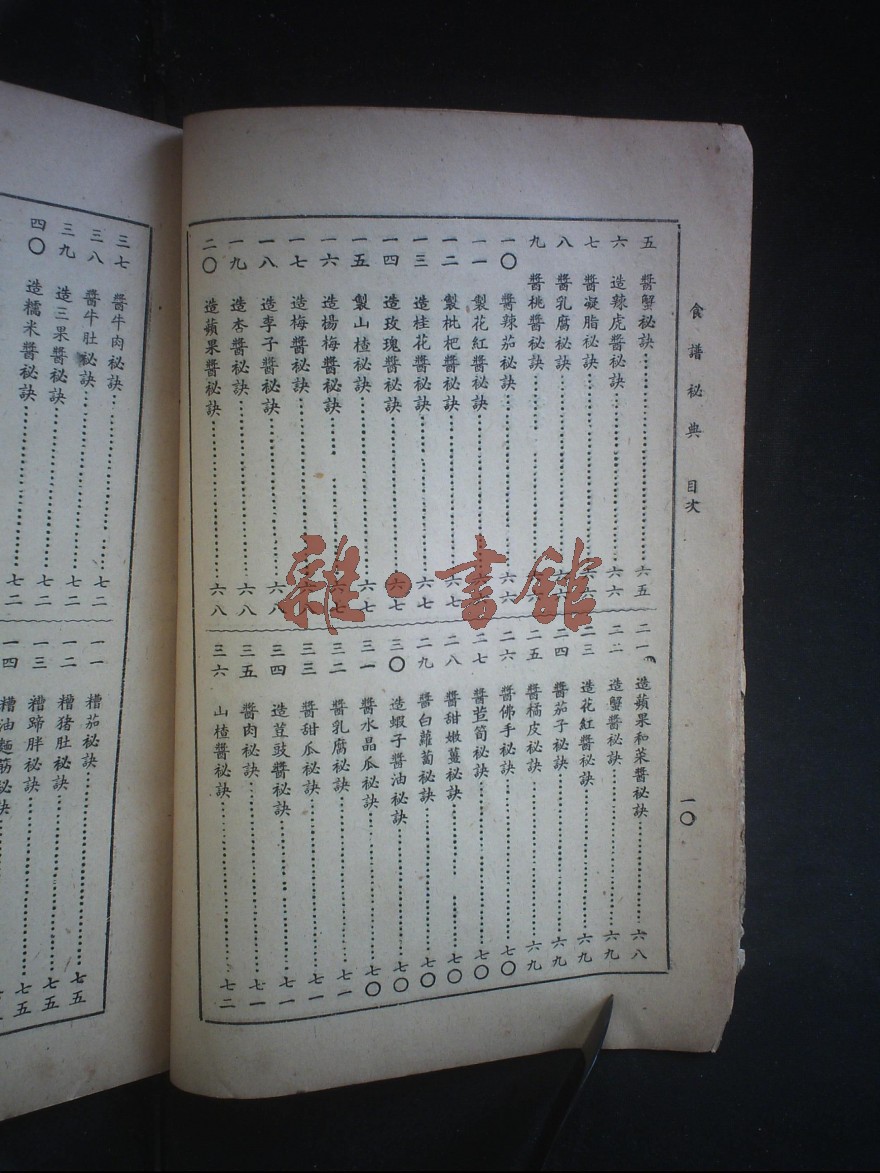 食譜秘典 目次
一〇
五 醬蟹秘訣 六五
六 造辣虎醬秘訣 六六
七 醬凝脂秘訣 六六
八 醬乳腐秘訣 六六
九 醬桃醬秘訣 六六
一〇 醬辣茄秘訣 六六
一一 製花紅醬秘訣
一二 製枇杷醬秘訣 六七
一三 造桂花醬秘訣 六七
一四 造玫瑰醬秘訣 六七
一五 製山楂秘訣 六七
一六 造楊梅醬秘訣 六七
一七 造梅醬秘訣 六八
一八 造李子醬秘訣 六八
一九 造杏醬秘訣 六八
二〇 造蘋果醬秘訣 六八
二一 造蘋果和菜醬秘訣 六八
二二 造蟹醬秘訣 六九
二三 造花紅醬秘訣 六九
二四 醬茄子秘訣 六九
二五 醬橘皮秘訣 六九
二六 醬佛手秘訣 七〇
二七 醬萱筍秘訣 七〇
二八 醬甜嫩薑秘訣 七〇
二九 醬白蘿蔔秘訣 七〇
三〇 造蝦子醬油秘訣 七〇
三一 醬水晶瓜秘訣 七〇
三二 醬乳腐秘訣 七一
三三 醬甜瓜秘訣 七一
三四 造荳豉醬秘訣 七一
三五 醬肉秘訣 七一
三六 山楂醬秘訣 七二
三七 醬牛肉秘訣 七二
三八 醬牛肚秘訣 七二
三九 造三果醬秘訣 七二
四〇 造糯米醬秘訣 七二
一一 糟茄秘訣 七五
一二 糟猪肚秘訣 七五
一三 糟蹄胖秘訣 七五
一四 糟油麵筋秘訣
雜·書館